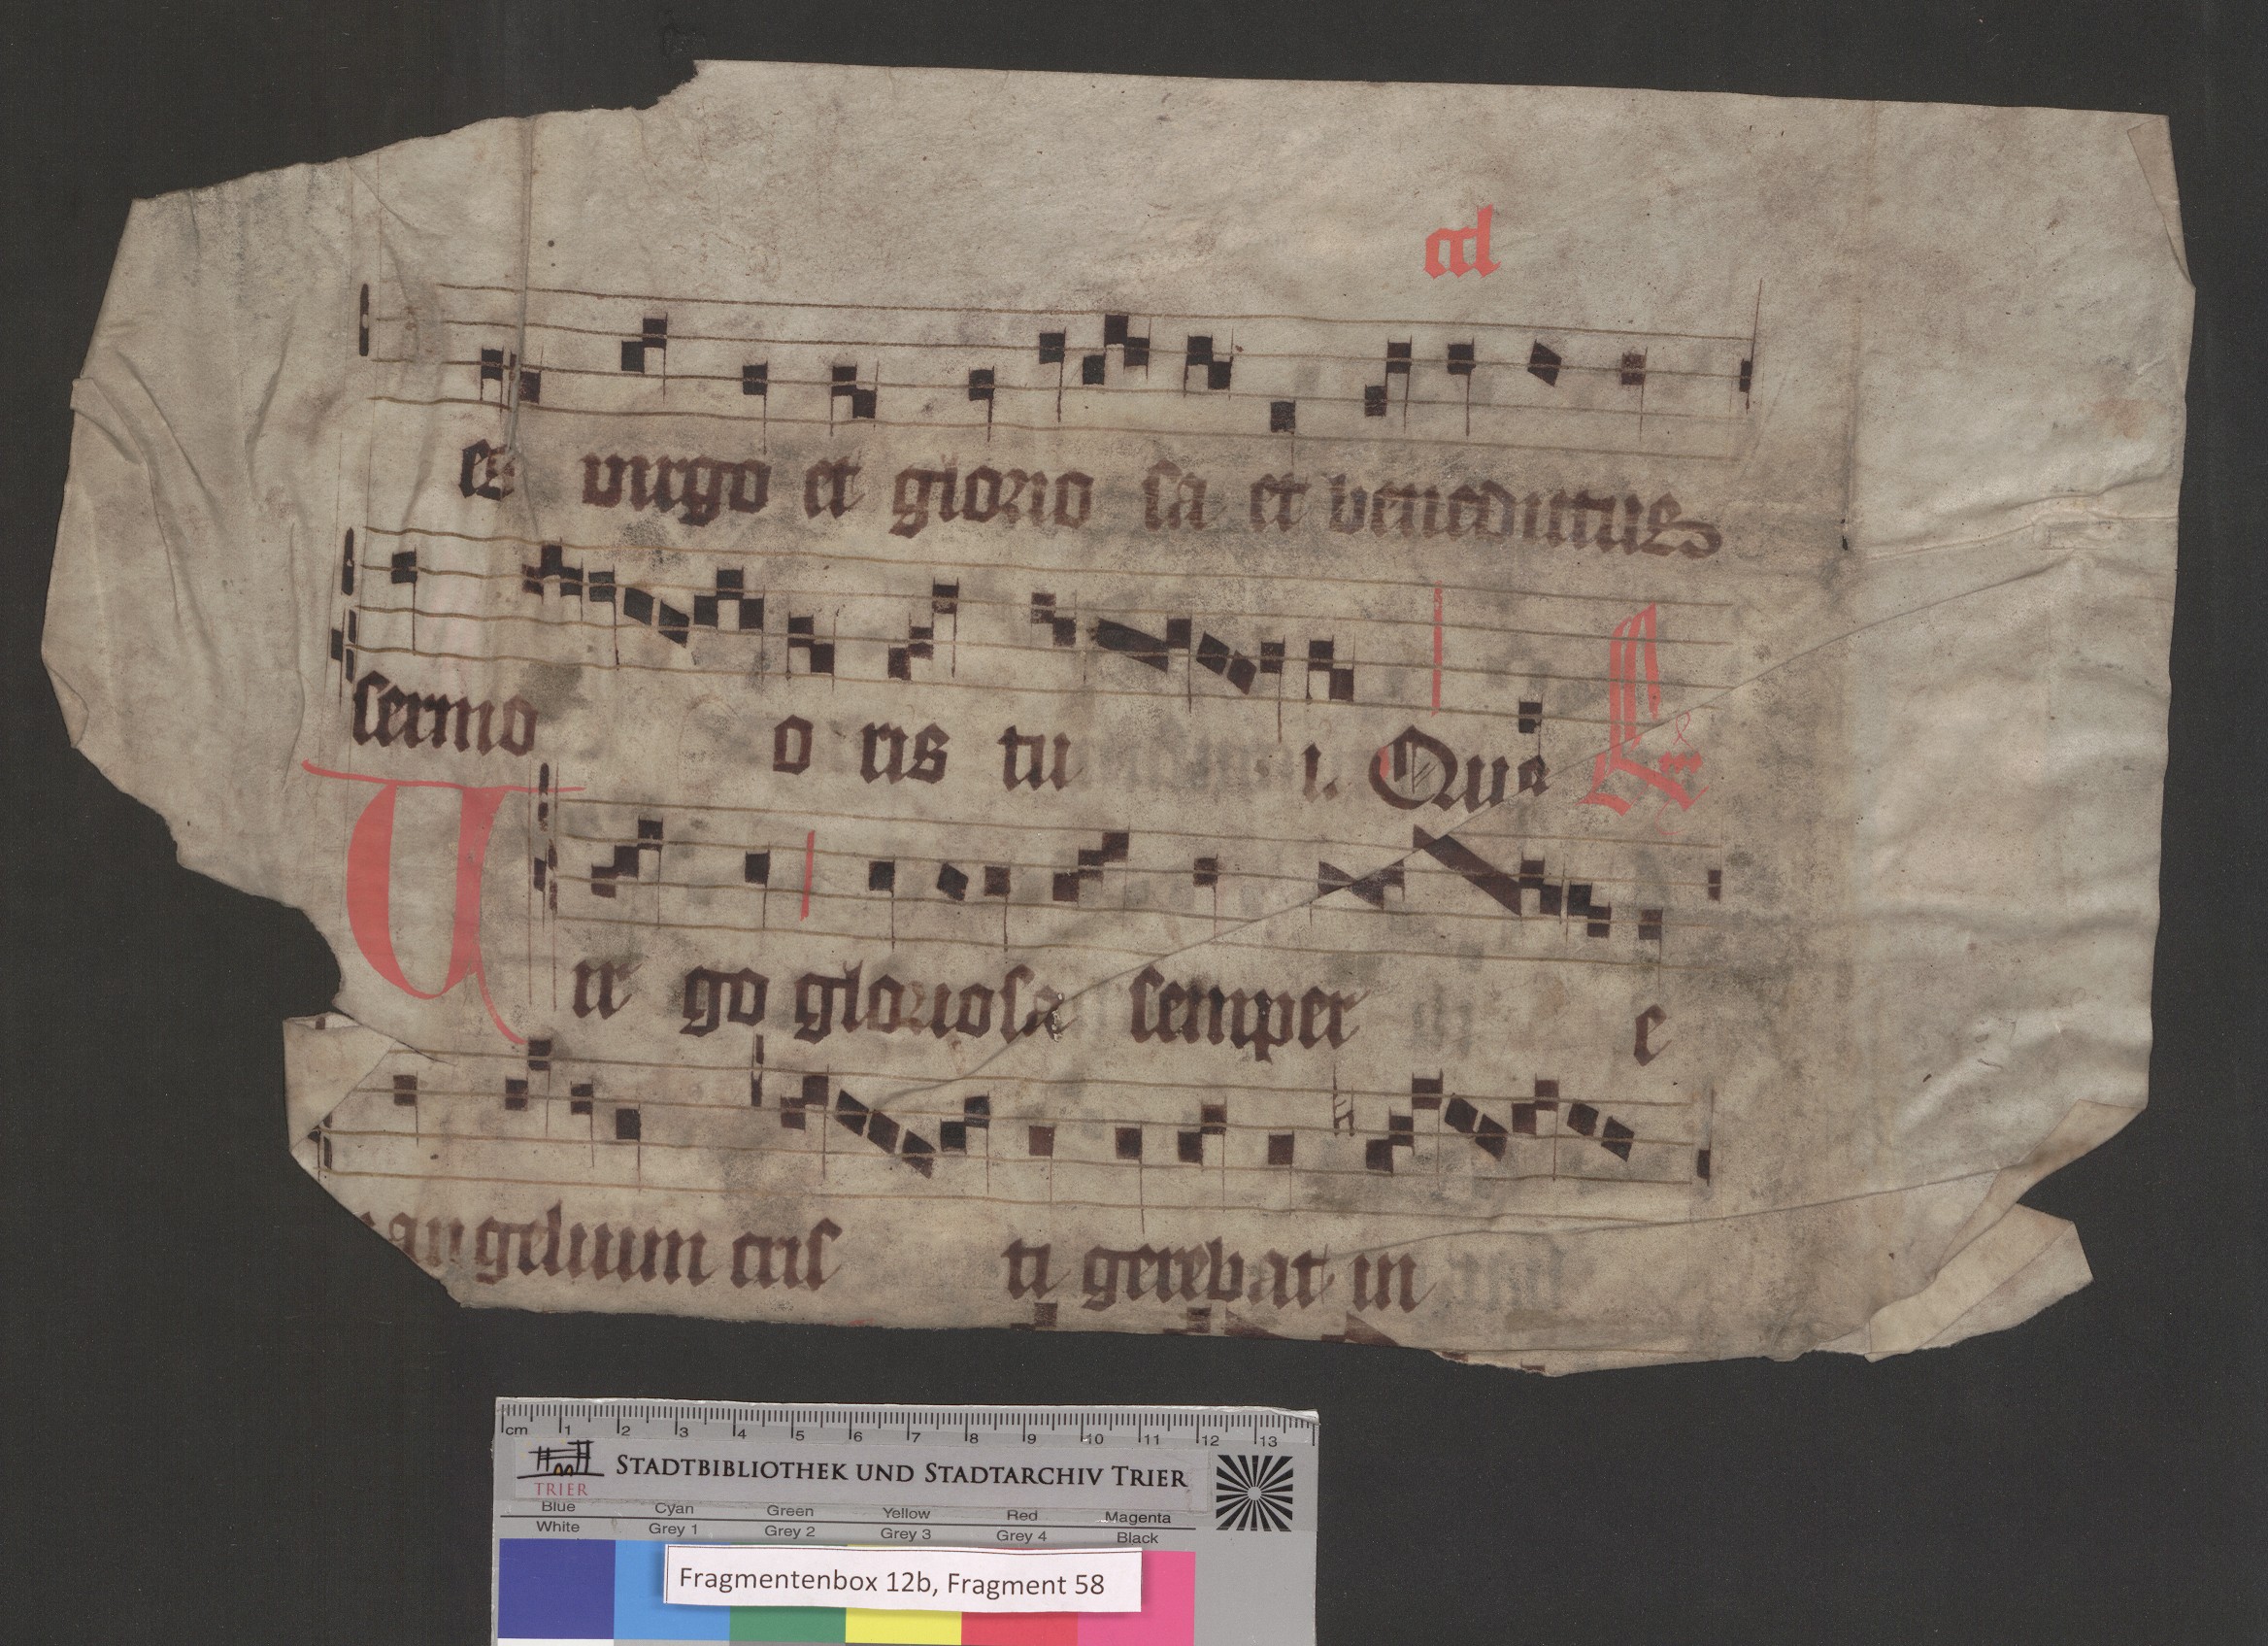 cd
es virgo et glorio sa et benedictus
sermo o ris tu i. Qua
Uir go gloriosa semper e
angelium cris ti gerebat in
cm 1 2 3 4 5 6 7 8 9 10 11 12 13
STADTBIBLIOTHEK UND STADTARCHIV TRIER
TRIER
Blue Cyan Green Yellow Red Magenta
White Grey 1 Grey 2 Grey 3 Grey 4 Black
Fragmentenbox 12b, Fragment 58